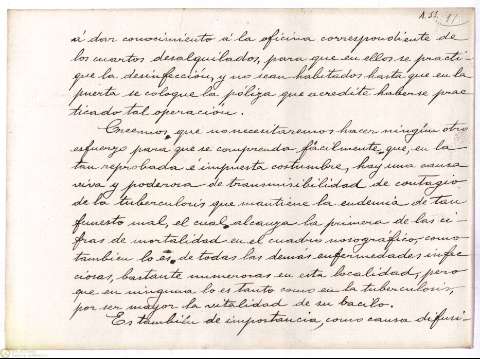 A.51. 81)
á dar conocimiento á la oficina correspondiente de
los cuartos desalquilados, para que en ellos se practi-
que la desinfección, y no sean habitados hasta que en la
puerta se coloque la póliza que acredite haberse prac-
ticado tal operación.
Creemos, que no necesitaremos hacer ningún otro
esfuerzo para que se comprenda fácilmente, que, en la
tan reprobada é impuesta costumbre, hay una causa
viva y poderosa de transmisibilidad de contagio
de la tuberculosis que mantiene la endemia de tan
funesto mal, el cual alcanza la primera de las ci-
fras de mortalidad en el cuadro nosográfico; como
también lo es, de todas las demas enfermedades infec-
ciosas, bastante numerosas en esta localidad, pero
que en ninguna lo es tanto como en la tuberculosis,
por ser mayor la vitalidad de su bacilo.
Es también de importancia, como causa difusi-